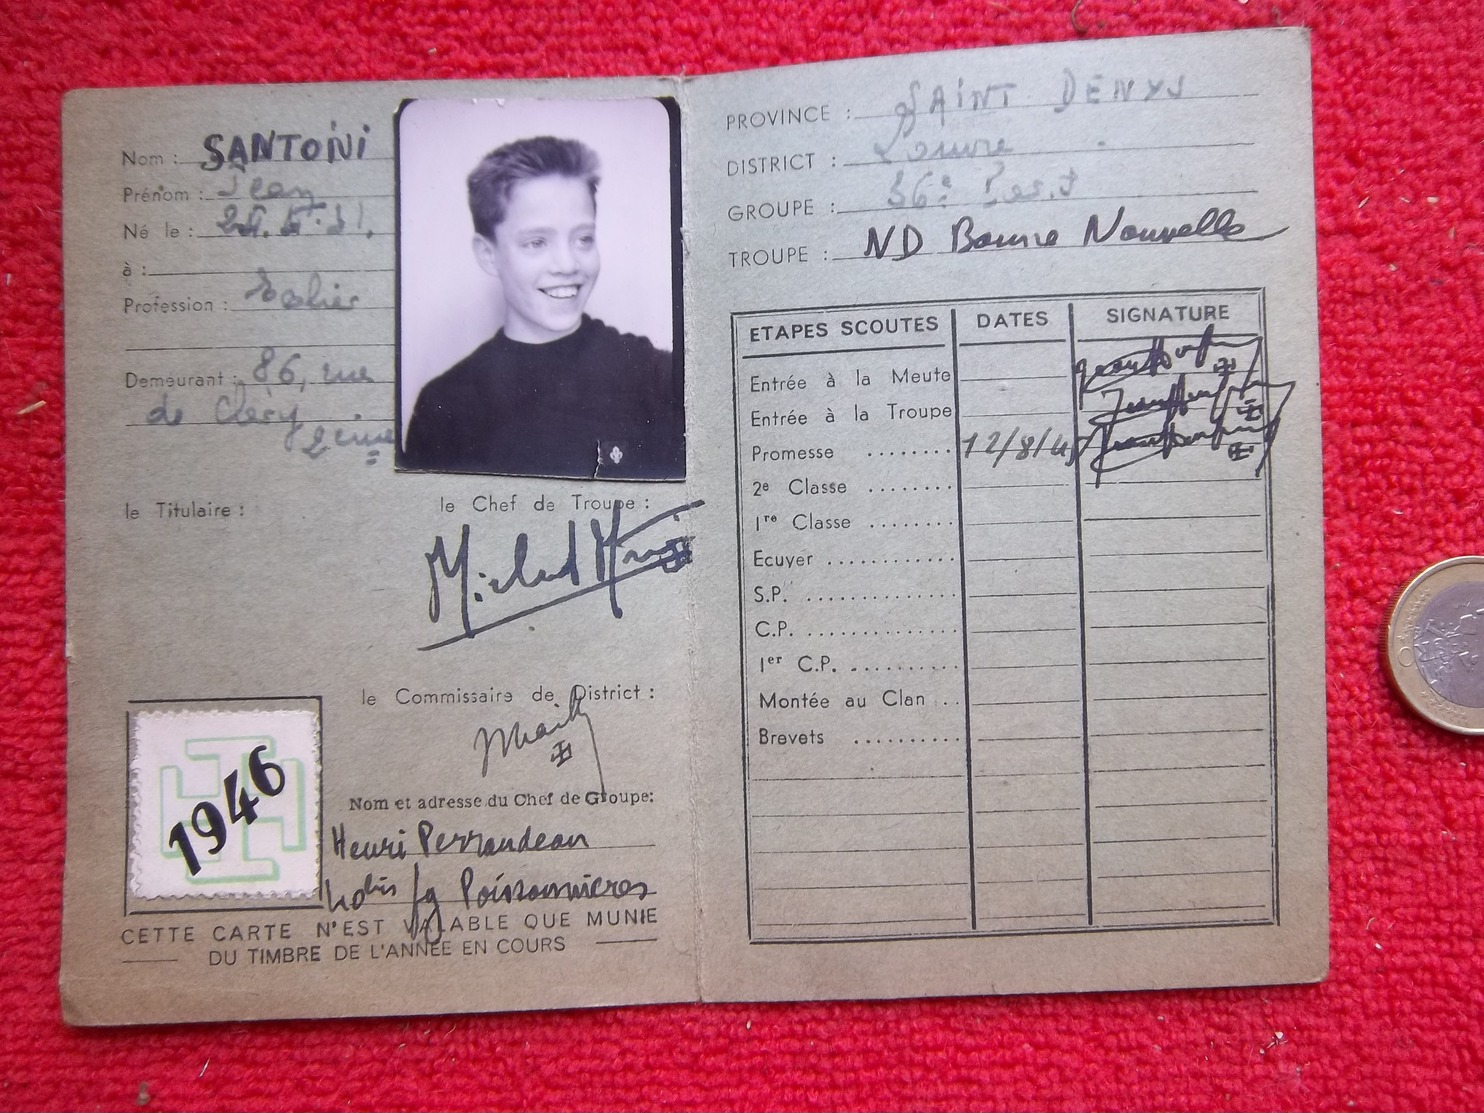 Nom : SANTONI
Prénom : Jean
Né le :
à :
Profession : Ecolier
Demeurant : 86, rue
de Cléry
2eme
le Titulaire :
le Chef de Troupe :
le Commissaire de District :
1946
Nom et adresse du Chef de Groupe:
Henri Perraudeau
40bis fg Poissonnières
CETTE CARTE N'EST VALABLE QUE MUNIE
DU TIMBRE DE L'ANNÉE EN COURS
PROVINCE : SAINT DENYS
DISTRICT : Louvre
GROUPE : 36e
TROUPE : ND Bonne Nouvelle
ETAPES SCOUTES DATES SIGNATURE
Entrée à la Meute
Entrée à la Troupe
Promesse ....... 12/8/45
2e Classe ........
1re Classe ........
Ecuyer ............
S.P. ..............
C.P. ..............
1er C.P. ..........
Montée au Clan ..
Brevets ..........